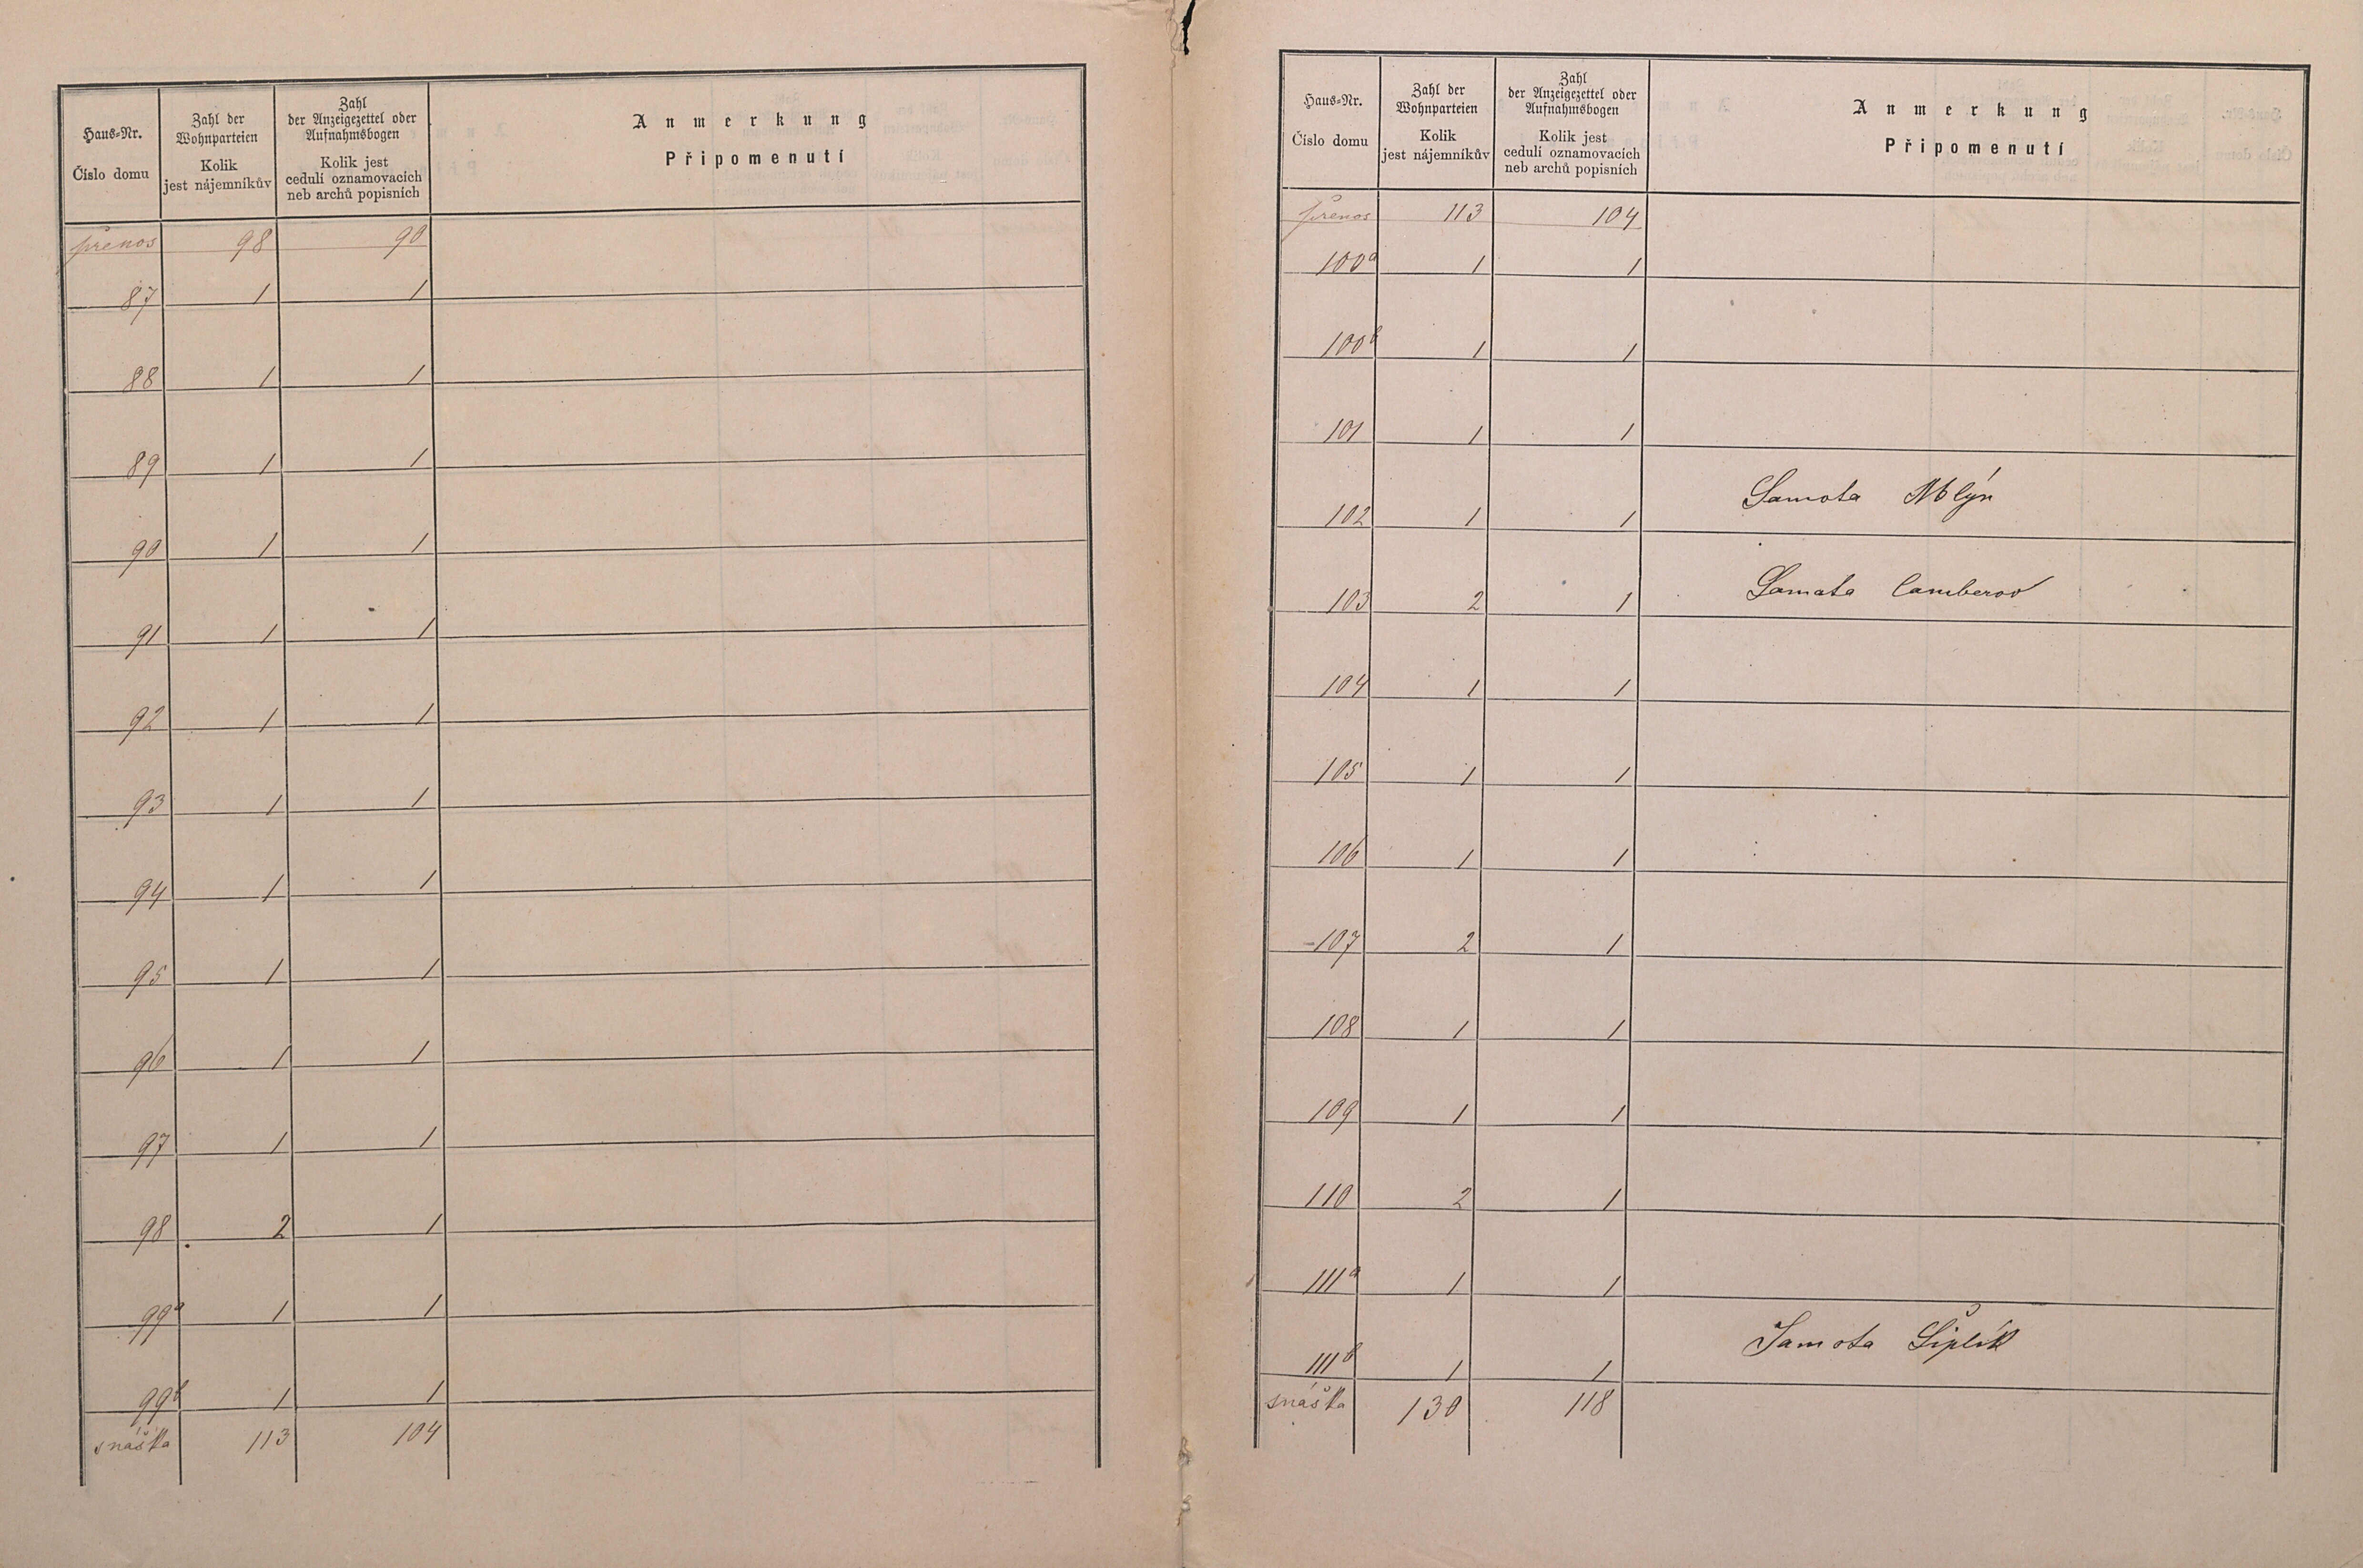 Haus-Nr.
Číslo domu
Zahl der
Wohnparteien
Kolik
jest nájemníkův
Zahl
der Anzeigezettel oder
Aufnahmsbogen
Kolik jest
cedulí oznamovacích
neb archů popisních
Anmerkung
Připomenutí
přenos 98 90
87 1 1
88 1 1
89 1 1
90 1 1
91 1 1
92 1 1
93 1 1
94 1 1
95 1 1
96 1 1
97 1 1
98 2 1
99a 1 1
99b 1 1
snáška 113 104
Haus-Nr.
Číslo domu
Zahl der
Wohnparteien
Kolik
jest nájemníkův
Zahl
der Anzeigezettel oder
Aufnahmsbogen
Kolik jest
cedulí oznamovacích
neb archů popisních
Anmerkung
Připomenutí
přenos 113 104
100a 1 1
100b 1 1
101 1 1
102 1 1 Samota Mlýn
103 2 1 Samata Camberov
104 1 1
105 1 1
106 1 1
107 2 1
108 1 1
109 1 1
110 2 1
111a 1 1
111b 1 1 Samota Šiplík
snáška 130 118